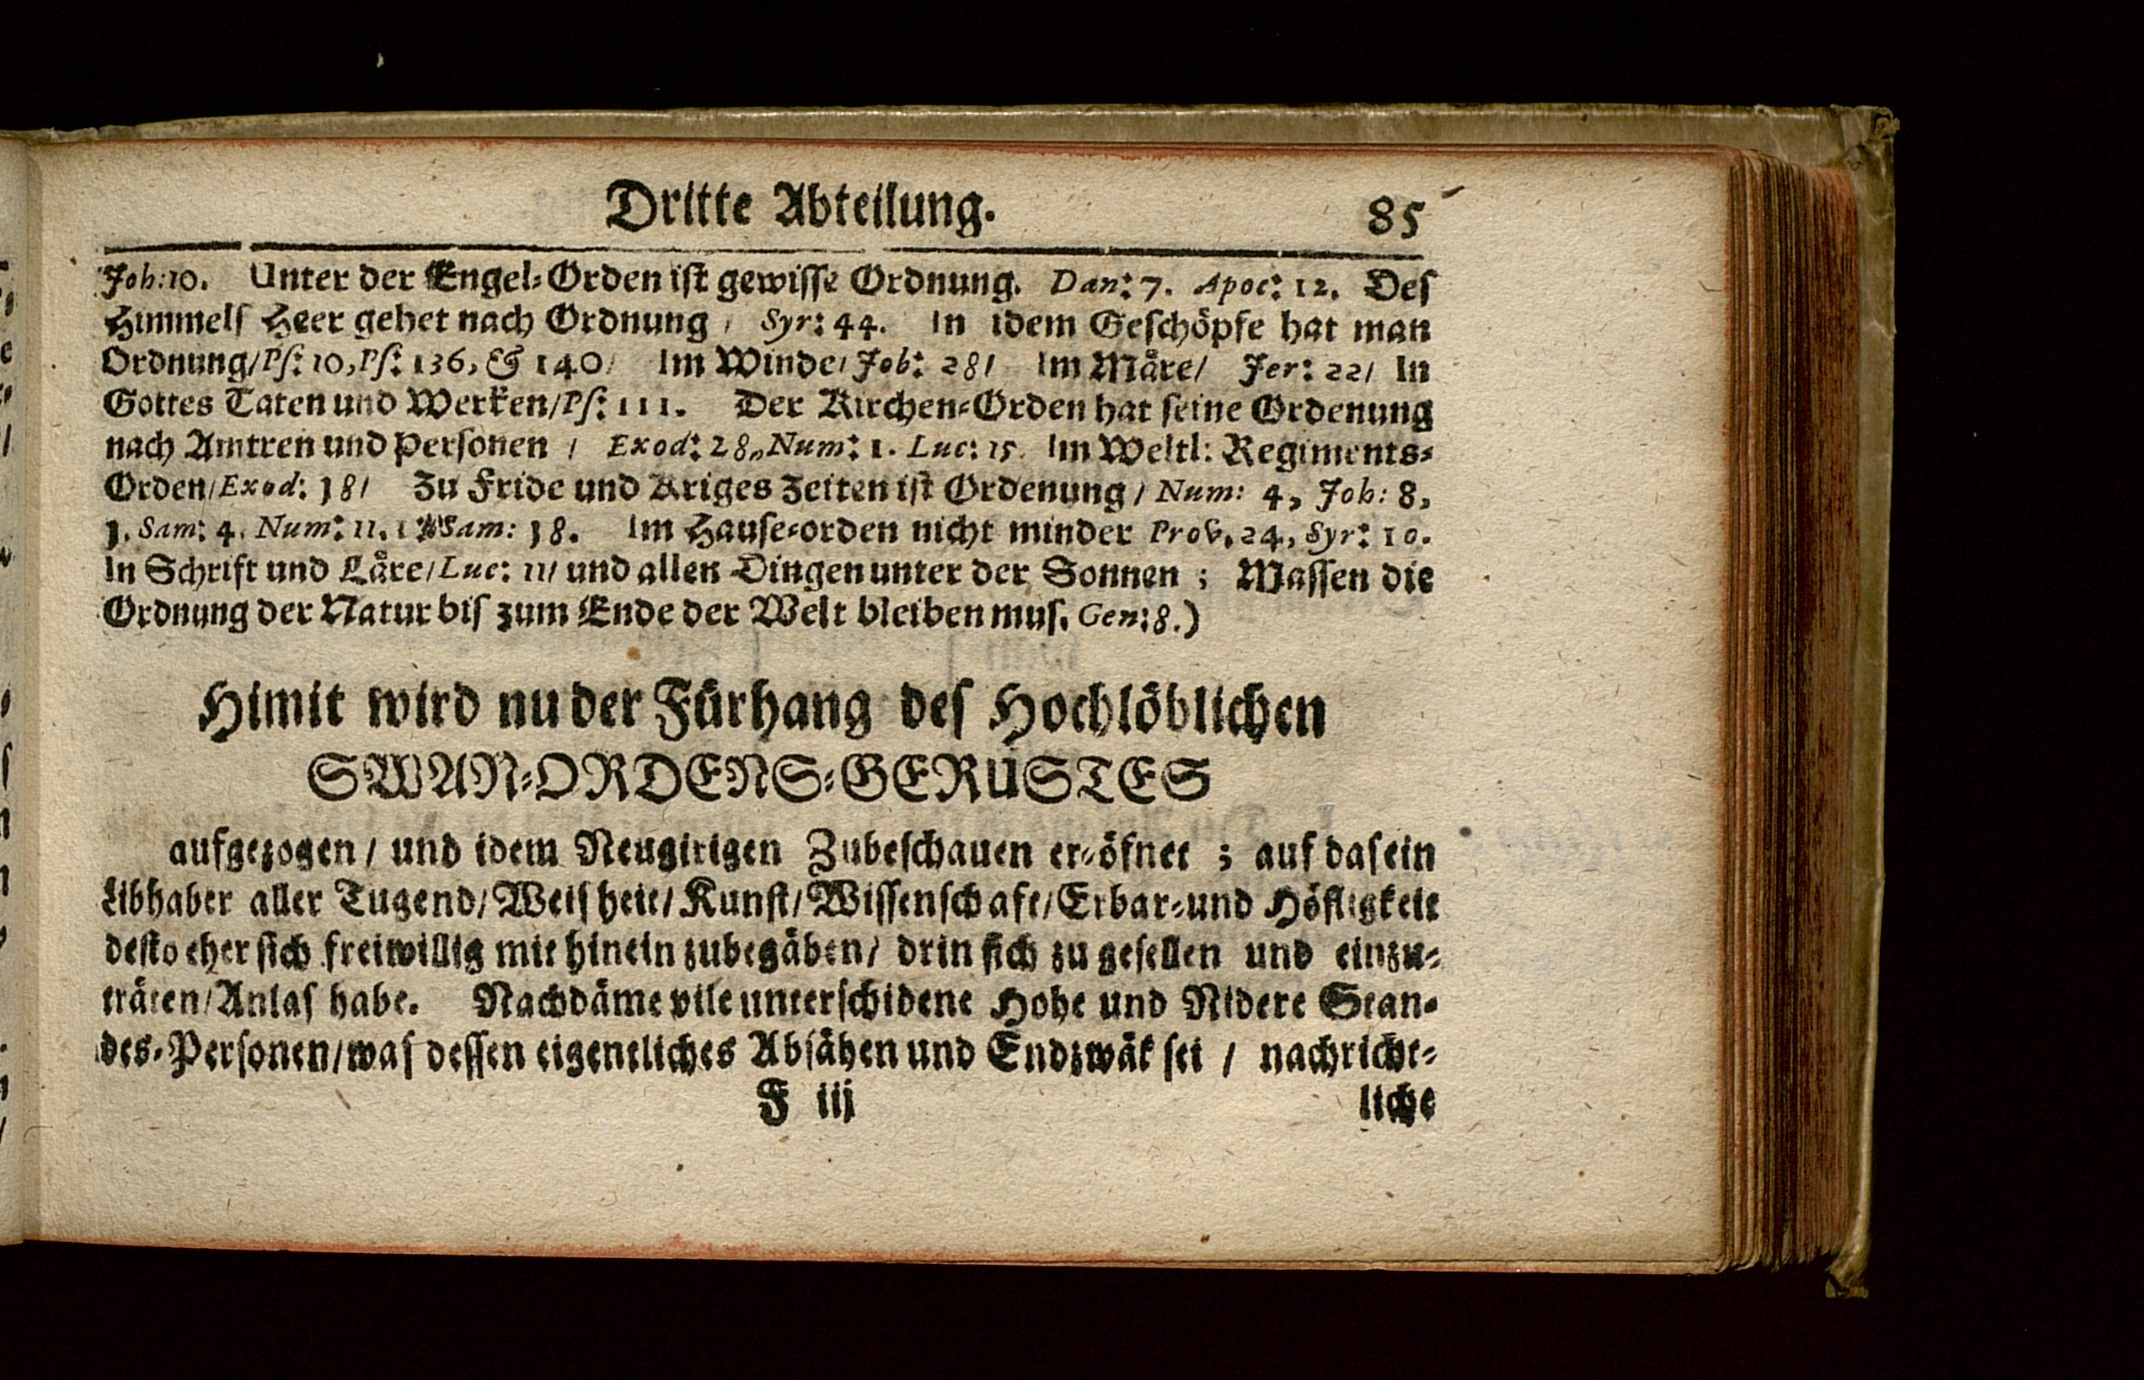 Dritte Abteilung. 85
Joh: 10. Unter der Engel-Orden ist gewisse Ordnung. Dan: 7. Apoc: 12. Des
Himmels Heer gehet nach Ordnung / Syr: 44. in idem Geschöpfe hat man
Ordnung / Ps: 10, Ps: 136, & 140 / im Winde / Job: 28 / im Märe / Jer: 22 / in
Gottes Taten und Werken / Ps: 111. Der Kirchen-Orden hat seine Ordenung
nach Amtren und Personen / Exod: 28, Num: 1. Luc: 15. im Weltl: Regiments-
Orden / Exod: 18 / Zu Fride und Kriges Zeiten ist Ordenung / Num: 4, Joh: 8,
1. Sam: 4. Num: 11. 1 Sam: 18. im Hause-orden nicht minder Prov. 24, Syr: 10.
in Schrift und Läre / Luc: 11 / und allen Dingen unter der Sonnen ; Massen die
Ordnung der Natur bis zum Ende der Welt bleiben mus. Gen: 8.)
Himit wird nu der Fürhang des Hochlöblichen
SWAN-ORDENS-GERÜSTES
aufgezogen / und idem Neugirigen Zubeschauen er-öfnet ; auf das ein
Libhaber aller Tugend / Weisheit / Kunst / Wissenschaft / Erbar- und Höfligkeit
desto eher sich freiwillig mit hinein zubegäben / drin sich zu gesellen und einzu-
träten / Anlas habe. Nachdäme vile unterschidene Hohe und Nidere Stan-
des-Personen / was dessen eigentliches Absähen und Endzwäk sei / nachricht-
F iij liche